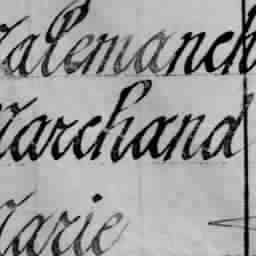 Malemanch
Marchand
Marie